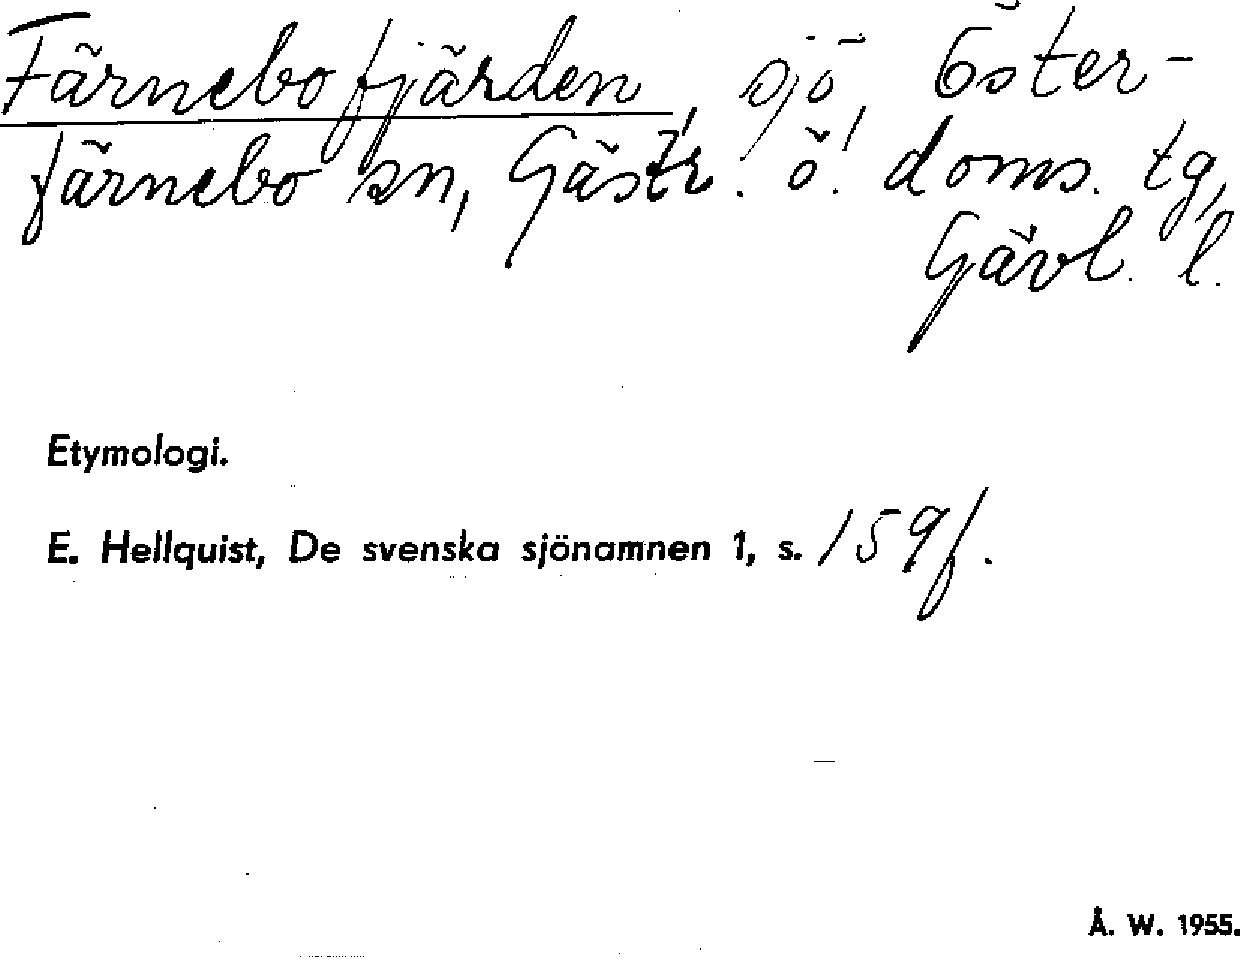 Färnebofjärden, sjö, Öster-
färnebo sn, Gästr. ö. doms. tg,
Gävl. l.
Etymologi.
E. Hellquist, De svenska sjönamnen 1, s. 159 f.
Å. W. 1955.